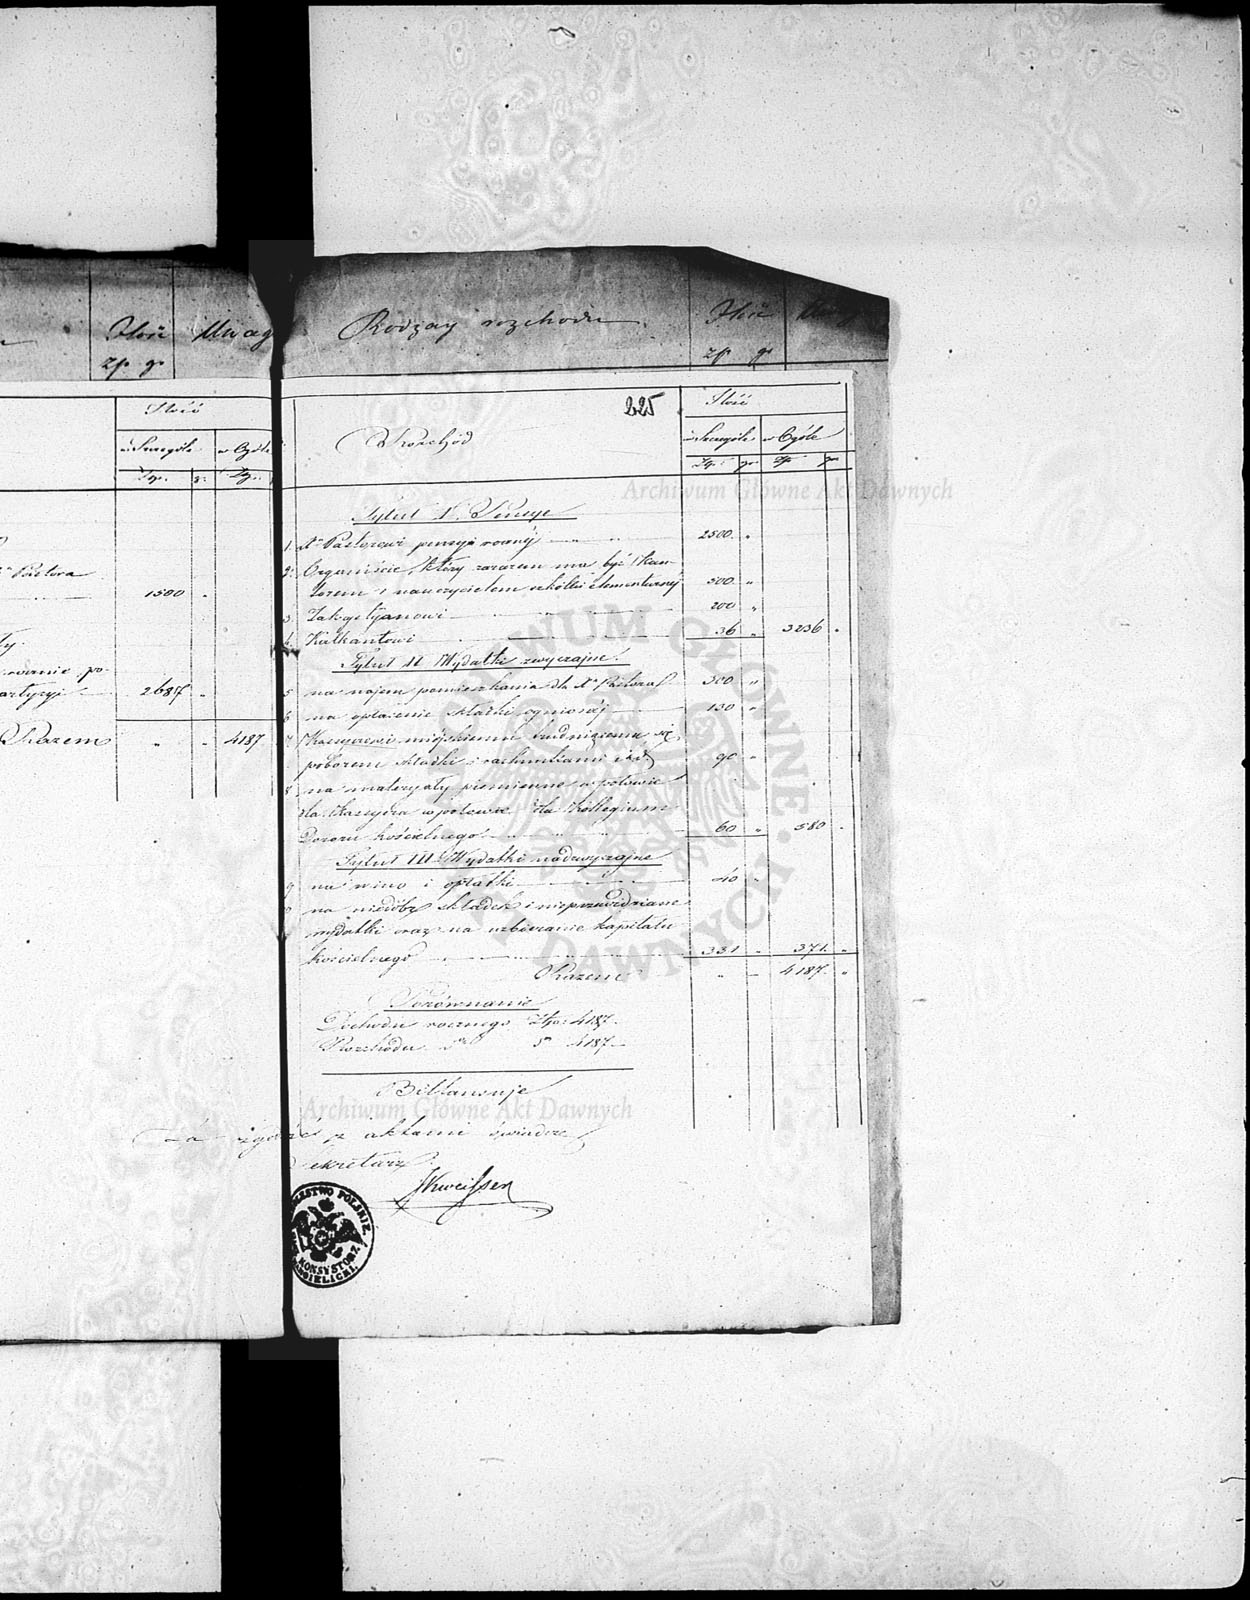 Ilość Uwag
zp gr
Rodzay rozchodu
Ilość
zp gr
Ilość
w Szczególe w Ogóle
Pastora
1500
2687
Razem 4187
225
Rozchód
Ilość
w Szczególe w Ogóle
Zp. gr. Zp. gr.
Tytuł I. Pensye
1. Xu Pastorowi pensyi roczny 2500
2. Organiście, który zarazem ma być Kan-
torem i nauczycielem szkółki elementarnéj 500
3. Zakrystyanowi 200
4. Kalkantowi 36 3236
Tytuł II Wydatki zwyczajne.
5 na najem pomieszkania dla Xa Pastora 300
6 na opłacenie składki ogniowéj 130
7 Kassyerowi miéjskiemu trudniącemu się
poborem składki i rachunkami 90
8 na materyały piśmienne w połowie
dla Kassyera w połowie dla Kollegium
Dozoru kościelnego 60 580
Tytuł III Wydatki nadzwyczajne
9 na wino i opłatki 40
na niedobór składek i nieprzewidziane
wydatki oraz na uzbieranie kapitału
kościelnego 331 371
Razem 4187
Porównanie
Dochodu rocznego Złp. 4187.
Rozchodu 4187
Billansuje
Za zgodność z aktami świadczę
Sekretarz
KRÓLESTWO POLSKIE
KONSYSTORZ
Archiwum Główne Akt Dawnych
Archiwum Główne Akt Dawnych
ARCHIWUM GŁÓWNE AKT DAWNYCH